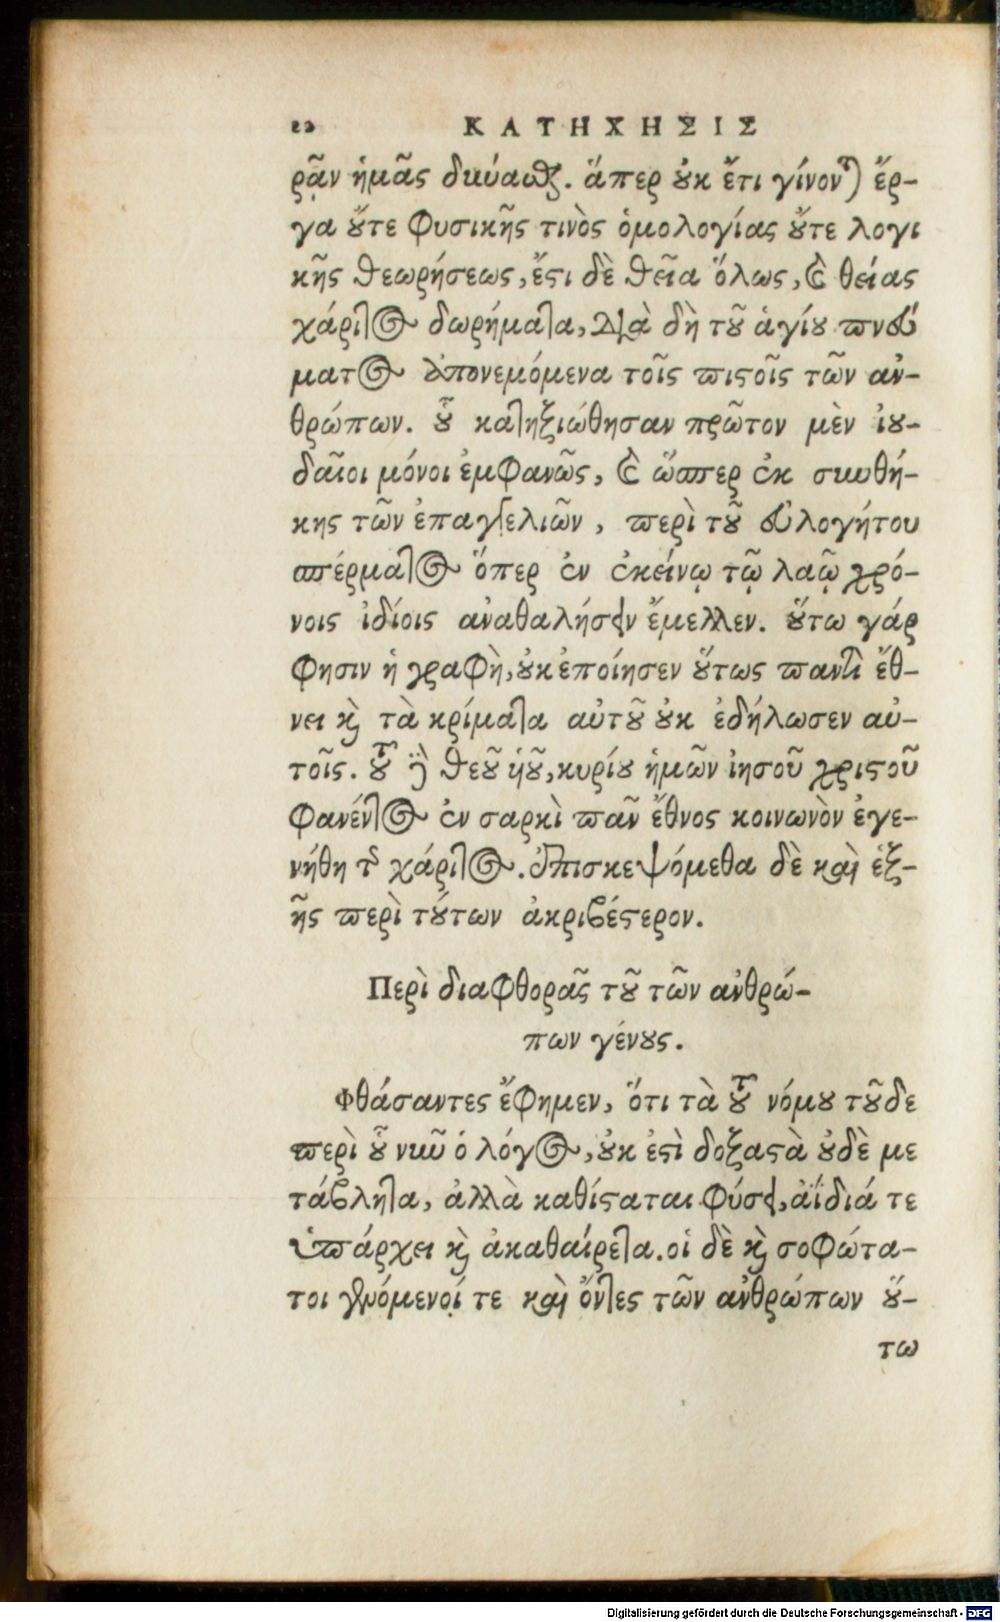 12 ΚΑΤΗΧΗΣΙΣ
ρᾷν ἡμᾶς δύνασθαι. ἅπερ οὐκ ἔτι γίνονται ἔρ-
γα οὔτε φυσικῆς τινὸς ὁμολογίας οὔτε λογι
κῆς θεωρήσεως, ἔστι δὲ θεῖα ὅλως, καὶ θείας
χάριτος δωρήματα, διὰ δὴ τοῦ ἁγίου πνεύ
ματος ἀπονεμόμενα τοῖς πιστοῖς τῶν ἀν-
θρώπων. οὗ κατηξιώθησαν πρῶτον μὲν ἰου-
δαῖοι μόνοι ἐμφανῶς, καὶ ὥσπερ ἐκ συνθή-
κης τῶν ἐπαγγελιῶν, περὶ τοῦ εὐλογήτου
σπέρματος ὅπερ ἐν ἐκείνῳ τῷ λαῷ χρό-
νοις ἰδίοις ἀναθαλήσειν ἔμελλεν. οὕτω γάρ
φησιν ἡ γραφὴ, οὐκ ἐποίησεν οὕτως παντὶ ἔθ-
νει καὶ τὰ κρίματα αὐτοῦ οὐκ ἐδήλωσεν αὐ-
τοῖς. τοῦ δὲ θεοῦ υἱοῦ, κυρίου ἡμῶν ἰησοῦ χριστοῦ
φανέντος ἐν σαρκὶ πᾶν ἔθνος κοινωνὸν ἐγε-
νήθη τῆς χάριτος. ἐπισκεψόμεθα δὲ καὶ ἑξ-
ῆς περὶ τούτων ἀκριβέστερον.
Περὶ διαφθορᾶς τοῦ τῶν ἀνθρώ-
πων γένους.
Φθάσαντες ἔφημεν, ὅτι τὰ τοῦ νόμου τοῦδε
περὶ οὗ νῦν ὁ λόγος, οὐκ ἐστὶ δοξαστὰ οὐδὲ με
τάβλητα, ἀλλὰ καθίσταται φύσει, ἀΐδιά τε
ὑπάρχει καὶ ἀκαθαίρετα. οἱ δὲ καὶ σοφώτα-
τοι γενόμενοί τε καὶ ὄντες τῶν ἀνθρώπων οὕ-
τω
Digitalisierung gefördert durch die Deutsche Forschungsgemeinschaft - DFG